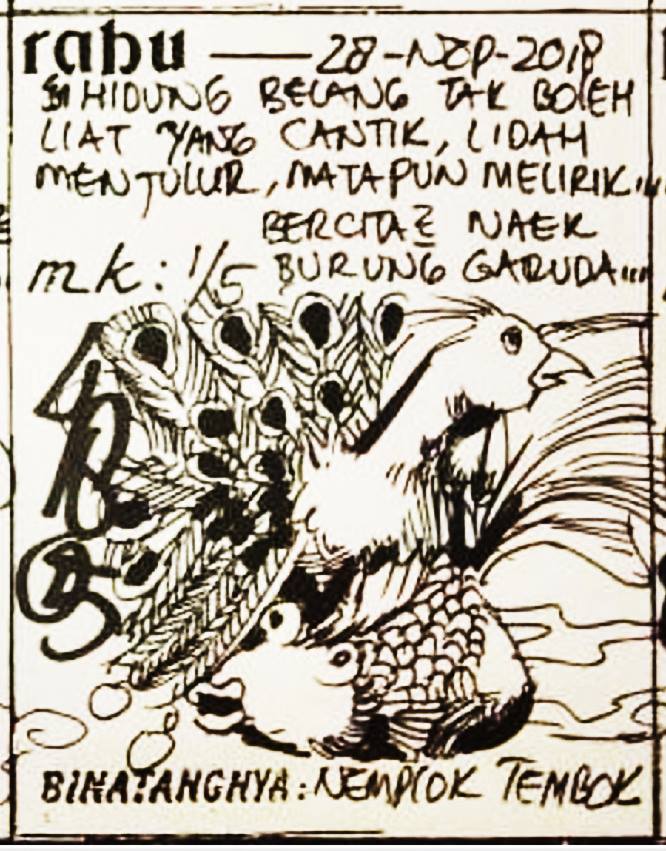 rabu — 28-NOP-2018
SI HIDUNG BELANG TAK BOLEH
LIAT YANG CANTIK, LIDAH
MENJULUR, MATAPUN MELIRIK....
BERCITA2 NAEK
mk: 1/5 BURUNG GARUDA....
BINATANGNYA: NEMPLOK TEMBOK